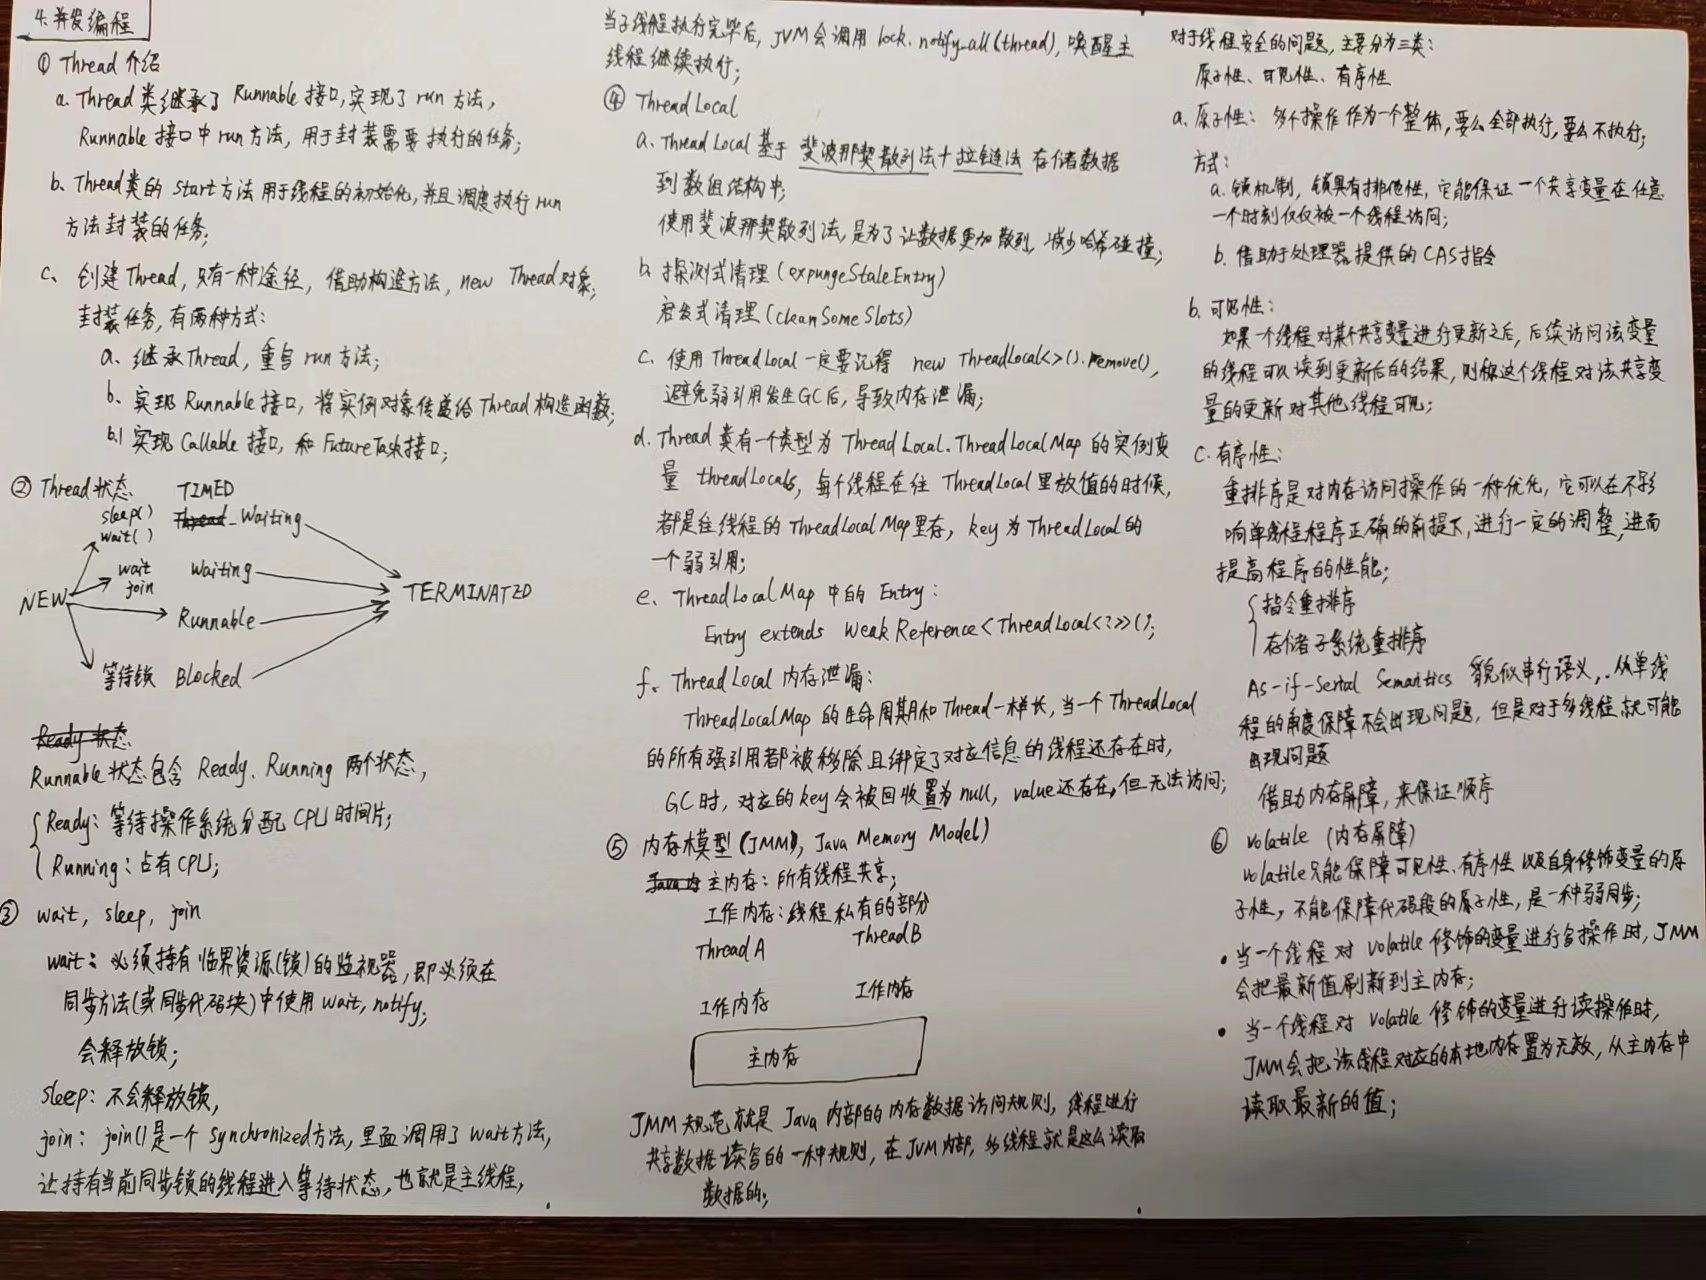 4.并发编程
① Thread 介绍
a. Thread 类继承了 Runnable 接口,实现了 run 方法,
Runnable 接口中 run 方法, 用于封装需要执行的任务;
b. Thread类的 start方法 用于线程的初始化,并且调度执行 run
方法封装的任务;
c、 创建Thread, 只有一种途径, 借助构造方法, new Thread对象;
封装任务, 有两种方式:
a. 继承Thread, 重写 run 方法;
b. 实现 Runnable 接口, 将实例对象传递给 Thread 构造函数;
b.1 实现 Callable 接口, 和 FutureTask接口;
② Thread 状态 TIMED
sleep() Thread_Waiting
wait()
wait Waiting
join
NEW TERMINATED
Runnable
等待锁 Blocked
Ready 状态
Runnable 状态包含 Ready、Running 两个状态,
Ready: 等待操作系统分配 CPU 时间片;
Running: 占有CPU;
③ wait, sleep, join
wait: 必须持有临界资源(锁)的监视器, 即必须在
同步方法(或同步代码块)中使用 wait, notify;
会释放锁;
sleep: 不会释放锁,
join: join()是一个 Synchronized方法, 里面调用了 wait方法,
让持有当前同步锁的线程进入等待状态, 也就是主线程,
当子线程执行完毕后, JVM 会调用 lock. notify_all(thread), 唤醒主
线程继续执行;
④ ThreadLocal
a. ThreadLocal 基于 斐波那契散列法+拉链法 存储数据
到数组结构中;
使用斐波那契散列法, 是为了让数据更加散列, 减少哈希碰撞;
b. 探测式清理 (expungeStaleEntry)
启发式清理 (cleanSomeSlots)
c. 使用 ThreadLocal 一定要记得 new ThreadLocal<>().remove(),
避免弱引用发生GC后, 导致内存泄漏;
d. Thread 类有一个类型为 ThreadLocal.ThreadLocalMap 的实例变
量 threadLocals, 每个线程在往 ThreadLocal 里放值的时候,
都是往线程的 ThreadLocalMap里存, key 为 ThreadLocal的
一个弱引用;
e、 ThreadLocalMap 中的 Entry:
Entry extends WeakReference<ThreadLocal<?>>();
f. ThreadLocal 内存泄漏:
ThreadLocalMap 的生命周期和 Thread一样长, 当一个 ThreadLocal
的所有强引用都被移除且绑定了对应信息的线程还存在时,
GC 时, 对应的 key 会被回收置为 null, value 还存在, 但无法访问;
⑤ 内存模型 (JMM), Java Memory Model)
Java 内 主内存: 所有线程共享;
工作内存: 线程 私有的部分
Thread A ThreadB
工作内存 工作内存
主内存
JMM 规范 就是 Java 内部的内存数据访问规则, 线程进行
共享数据读写的一种规则, 在 JVM 内部, 多线程就是这么读取
数据的;
对于线程安全的问题, 主要分为三类:
原子性、可见性、有序性
a. 原子性: 多个操作作为一个整体, 要么全部执行, 要么不执行;
方式:
a. 锁机制, 锁具有排他性, 它能保证一个共享变量在任意
一个时刻仅仅被一个线程访问;
b. 借助于处理器提供的 CAS指令
b. 可见性:
如果一个线程对某个共享变量进行更新之后, 后续访问该变量
的线程可以读到更新后的结果, 则称这个线程对该共享变
量的更新对其他线程可见;
c. 有序性:
重排序是对内存访问操作的一种优化, 它可以在不影
响单线程程序正确的前提下, 进行一定的调整, 进而
提高程序的性能;
指令重排序
存储子系统重排序
As-if-Serial Semantics 貌似串行语义, 从单线
程的角度保障不会出现问题, 但是对于多线程就可能
出现问题
借助内存屏障, 来保证顺序
⑥ volatile (内存屏障)
volatile只能保障可见性、有序性 以及自身修饰变量的原
子性, 不能保障代码段的原子性, 是一种弱同步;
• 当一个线程对 volatile 修饰的变量进行写操作时, JMM
会把最新值刷新到主内存;
• 当一个线程对 volatile 修饰的变量进行读操作时,
JMM会把该线程对应的本地内存置为无效, 从主内存中
读取最新的值;